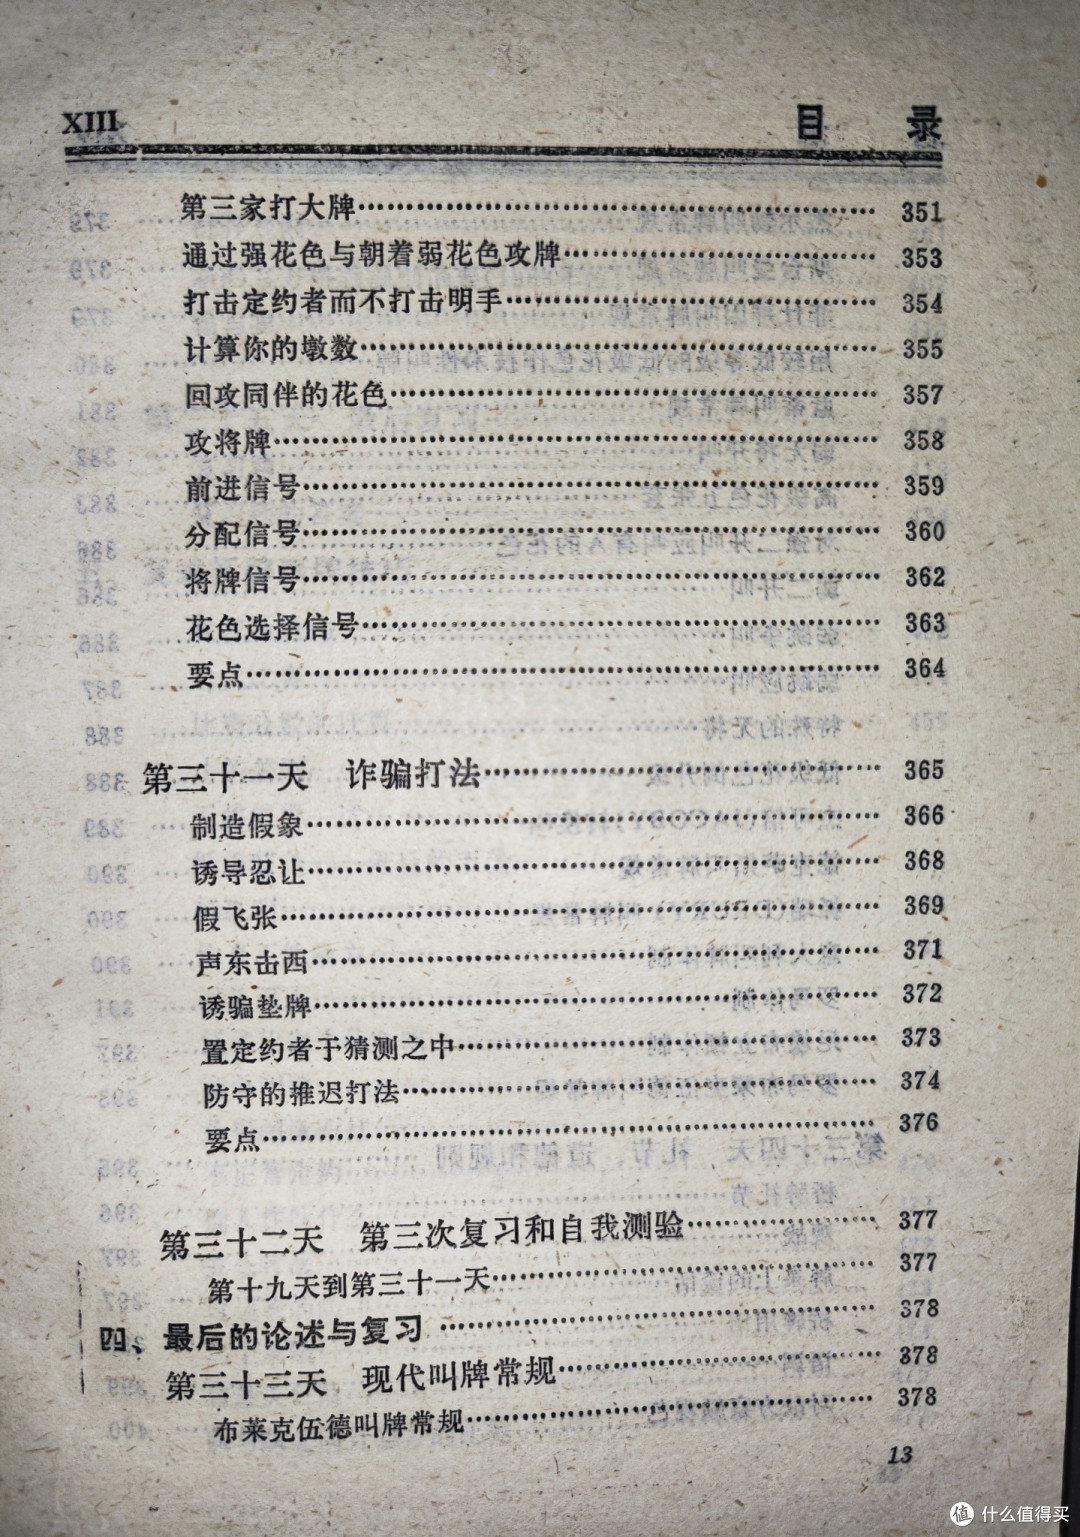 XIII 目 录
第三家打大牌……351
通过强花色与朝着弱花色攻牌……353
打击定约者而不打击明手……354
计算你的墩数……355
回攻同伴的花色……357
攻将牌……358
前进信号……359
分配信号……360
将牌信号……362
花色选择信号……363
要点……364
第三十一天 诈骗打法……365
制造假象……366
诱导忍让……368
假飞张……369
声东击西……371
诱骗垫牌……372
置定约者于猜测之中……373
防守的推迟打法……374
要点……376
第三十二天 第三次复习和自我测验……377
第十九天到第三十一天……377
四、最后的论述与复习……378
第三十三天 现代叫牌常规……378
布莱克伍德叫牌常规……378
13
值 什么值得买